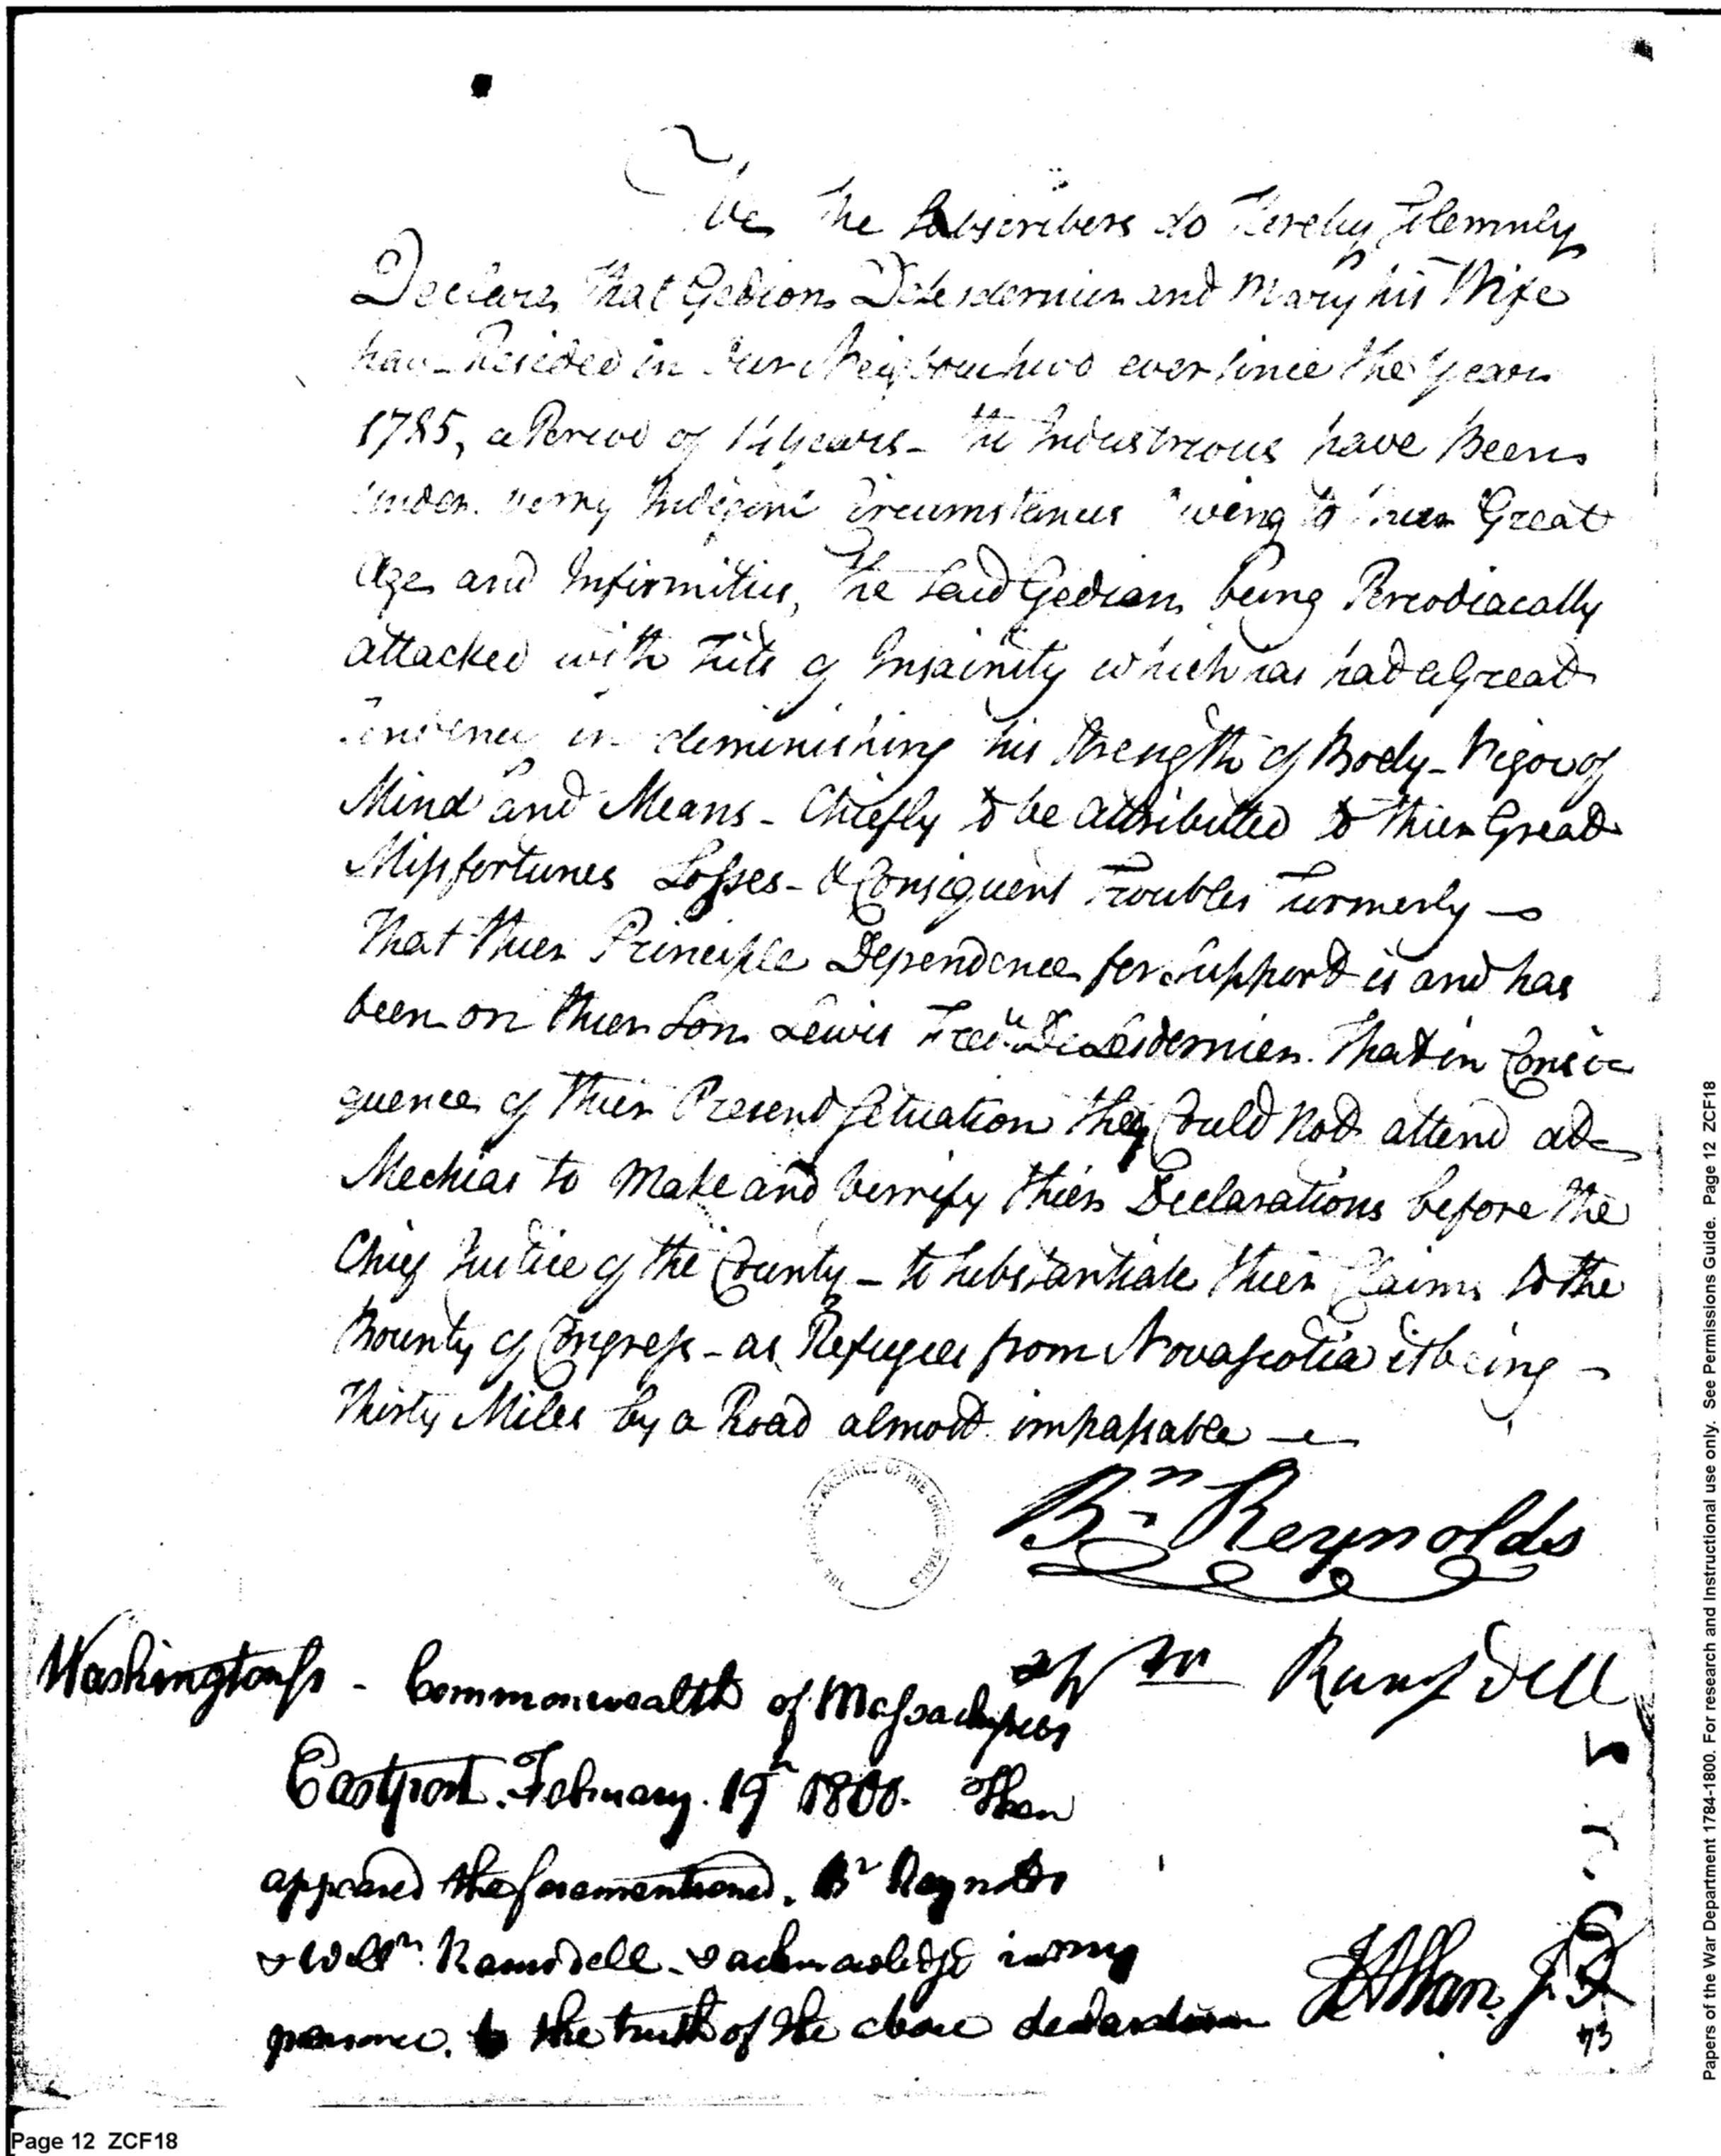 We the Subscribers do hereby Solemnly
Declare that Gedion Delesdernier and Mary his Wife
have Resided in our Neigbourhood ever Since the Year
1785, a Period of 14 Years - tho Industrious have Been
under verry Indigent Circumstances owing to thier Great
Age and Infirmities, the Said Gedion being Pereodiacally
attacked with Fits of Insainity which has had a Great
Tendency in deminishing his Strength of Body - Vigor of
Mind and Means - Chiefly to be attributed to thier Great
Missfortunes Losses - & Consiquent Troubles Formerly -
That thier Principle Dependence for Support is and has
been on thier Son Lewis Fredk DeLesdernier. That in Conse
quence of thier Present Situation they Could Not attend at
Mechias to Make and verrify thier Declarations before the
Chief Justice of the County - to Substantiate thier Claims to the
Bounty of Congress - as Refugees from Novascotia it being -
Thirty Miles by a Road almost impassable -
Bn Reynolds
Wm Ramsdell
Washington ss - Commonwealth of Massachusetts
Eastport. February. 19th 1800. Then
appeared the forementioned. Bn Reynolds
& Willm Ramsdell. & acknowledge in my
presence. to the truth of the above declaration
J Allan. J P
73
THE NATIONAL ARCHIVES OF THE UNITED STATES
Papers of the War Department 1784-1800. For research and Instructional use only. See Permissions Guide. Page 12 ZCF18
Page 12 ZCF18